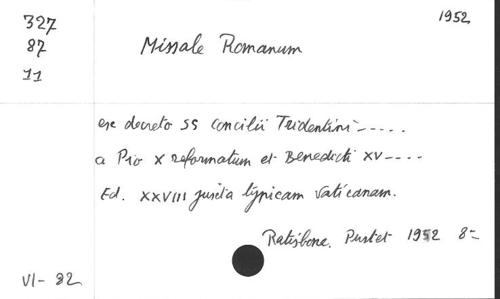 1952
327
87
11
Missale Romanum
ex decreto SS Concilii Tridentini -----.
a Pio X reformatum et Benedicti XV ----.
Ed. XXVIII juxta typicam Vaticanam.
Ratisbone. Pustet 1952 8=
VI- 82